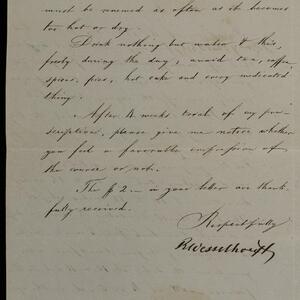 must be renewed as often as it becomes
too hot or dry.
Drink nothing but water & this,
freely during the day, avoid tea, coffee,
spices, pies, hot cake and every medicated
thing.
After 4 weeks trial of my pre-
scriptions, please give me notice whether
you feel a favorable impression of
the course or not.
The $2.— in your letter are thank-
fully received.
Respectfully
R Wesselhoeft